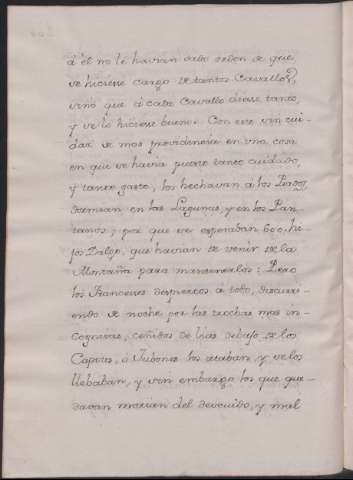 á él no le havian dado orden de que
se hiciese cargo de tantos Cavallos,
sino que á cada Cavallo diese tanto,
y se lo hiciese bueno. Con esto sin cui-
dar de mas providencia en una cosa
en que se havia puesto tanto cuidado,
y tanto gasto, los hechavan a los Prados,
en las Lagunas, y en los Pan-
tanos; por que se esperaban 600 hi-
jos Dalgo, que havian de venir de la
Montaña para mantenerlos: Pero
los Franceses despiertos á todo, discurri-
endo de noche por las trochas mas in-
cognitas, ceñidos de lias debajo de los
Capotes, ó Jubones los ataban, y se los
llebaban, y sin embargo los que que-
davan morian del descuido, y mal